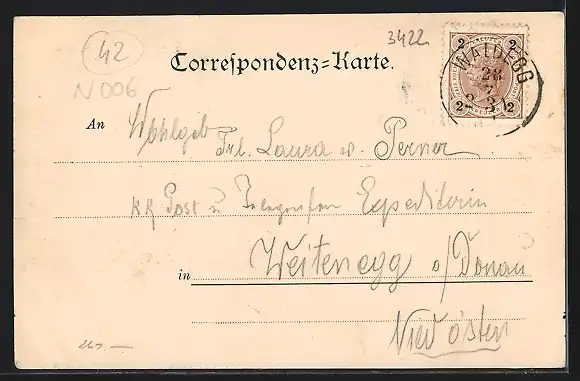 42
3422
N 006
Correspondenz-Karte.
2 2
WALDEGG
28
7
2 2
An Wohlgeb
Frl. Laura v. Perner
kk Post u Telegrafen Expeditorin
in Weitenegg o/Donau
Nied östen